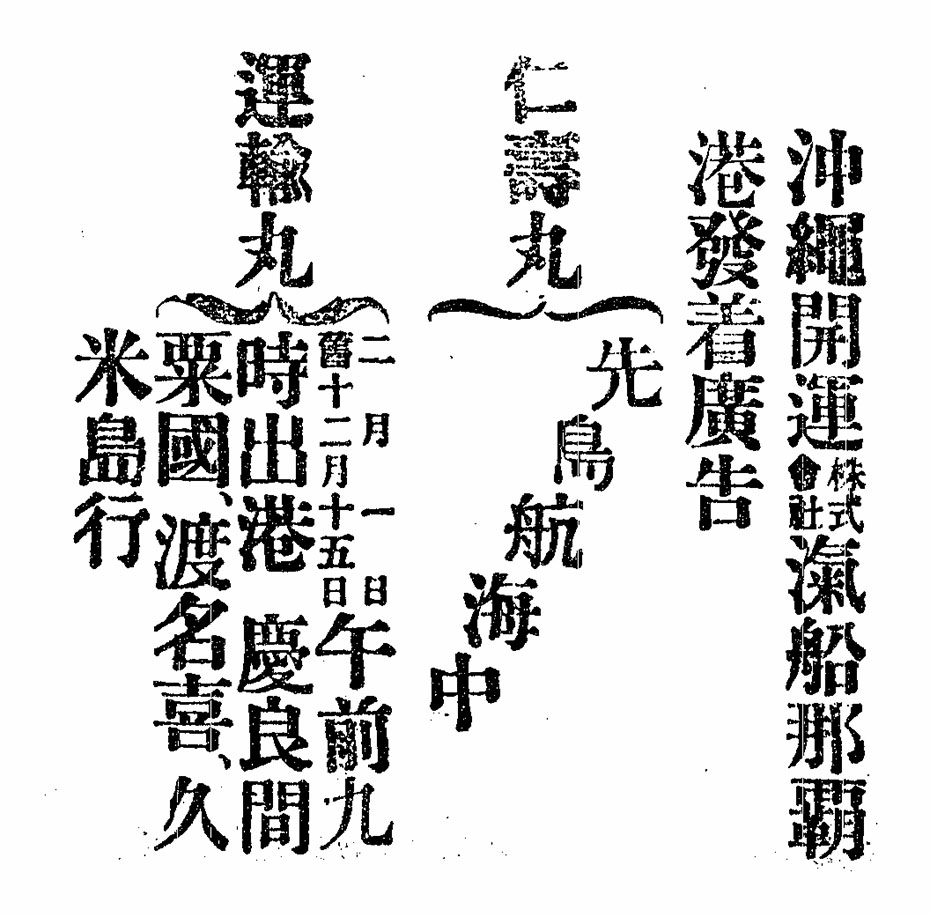 沖繩開運株式會社滊船那覇
港發着廣告
仁壽丸
先島航海中
運輸丸
二月一日
舊十二月十五日
午前九
時出港 慶良間
粟國、渡名喜、久
米島行